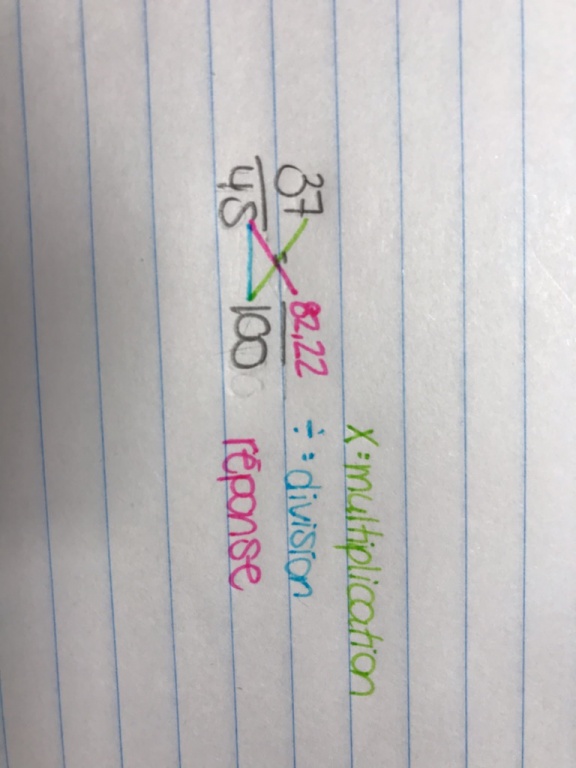 x:multiplication
37 82,22 ÷:division
45 100 réponse